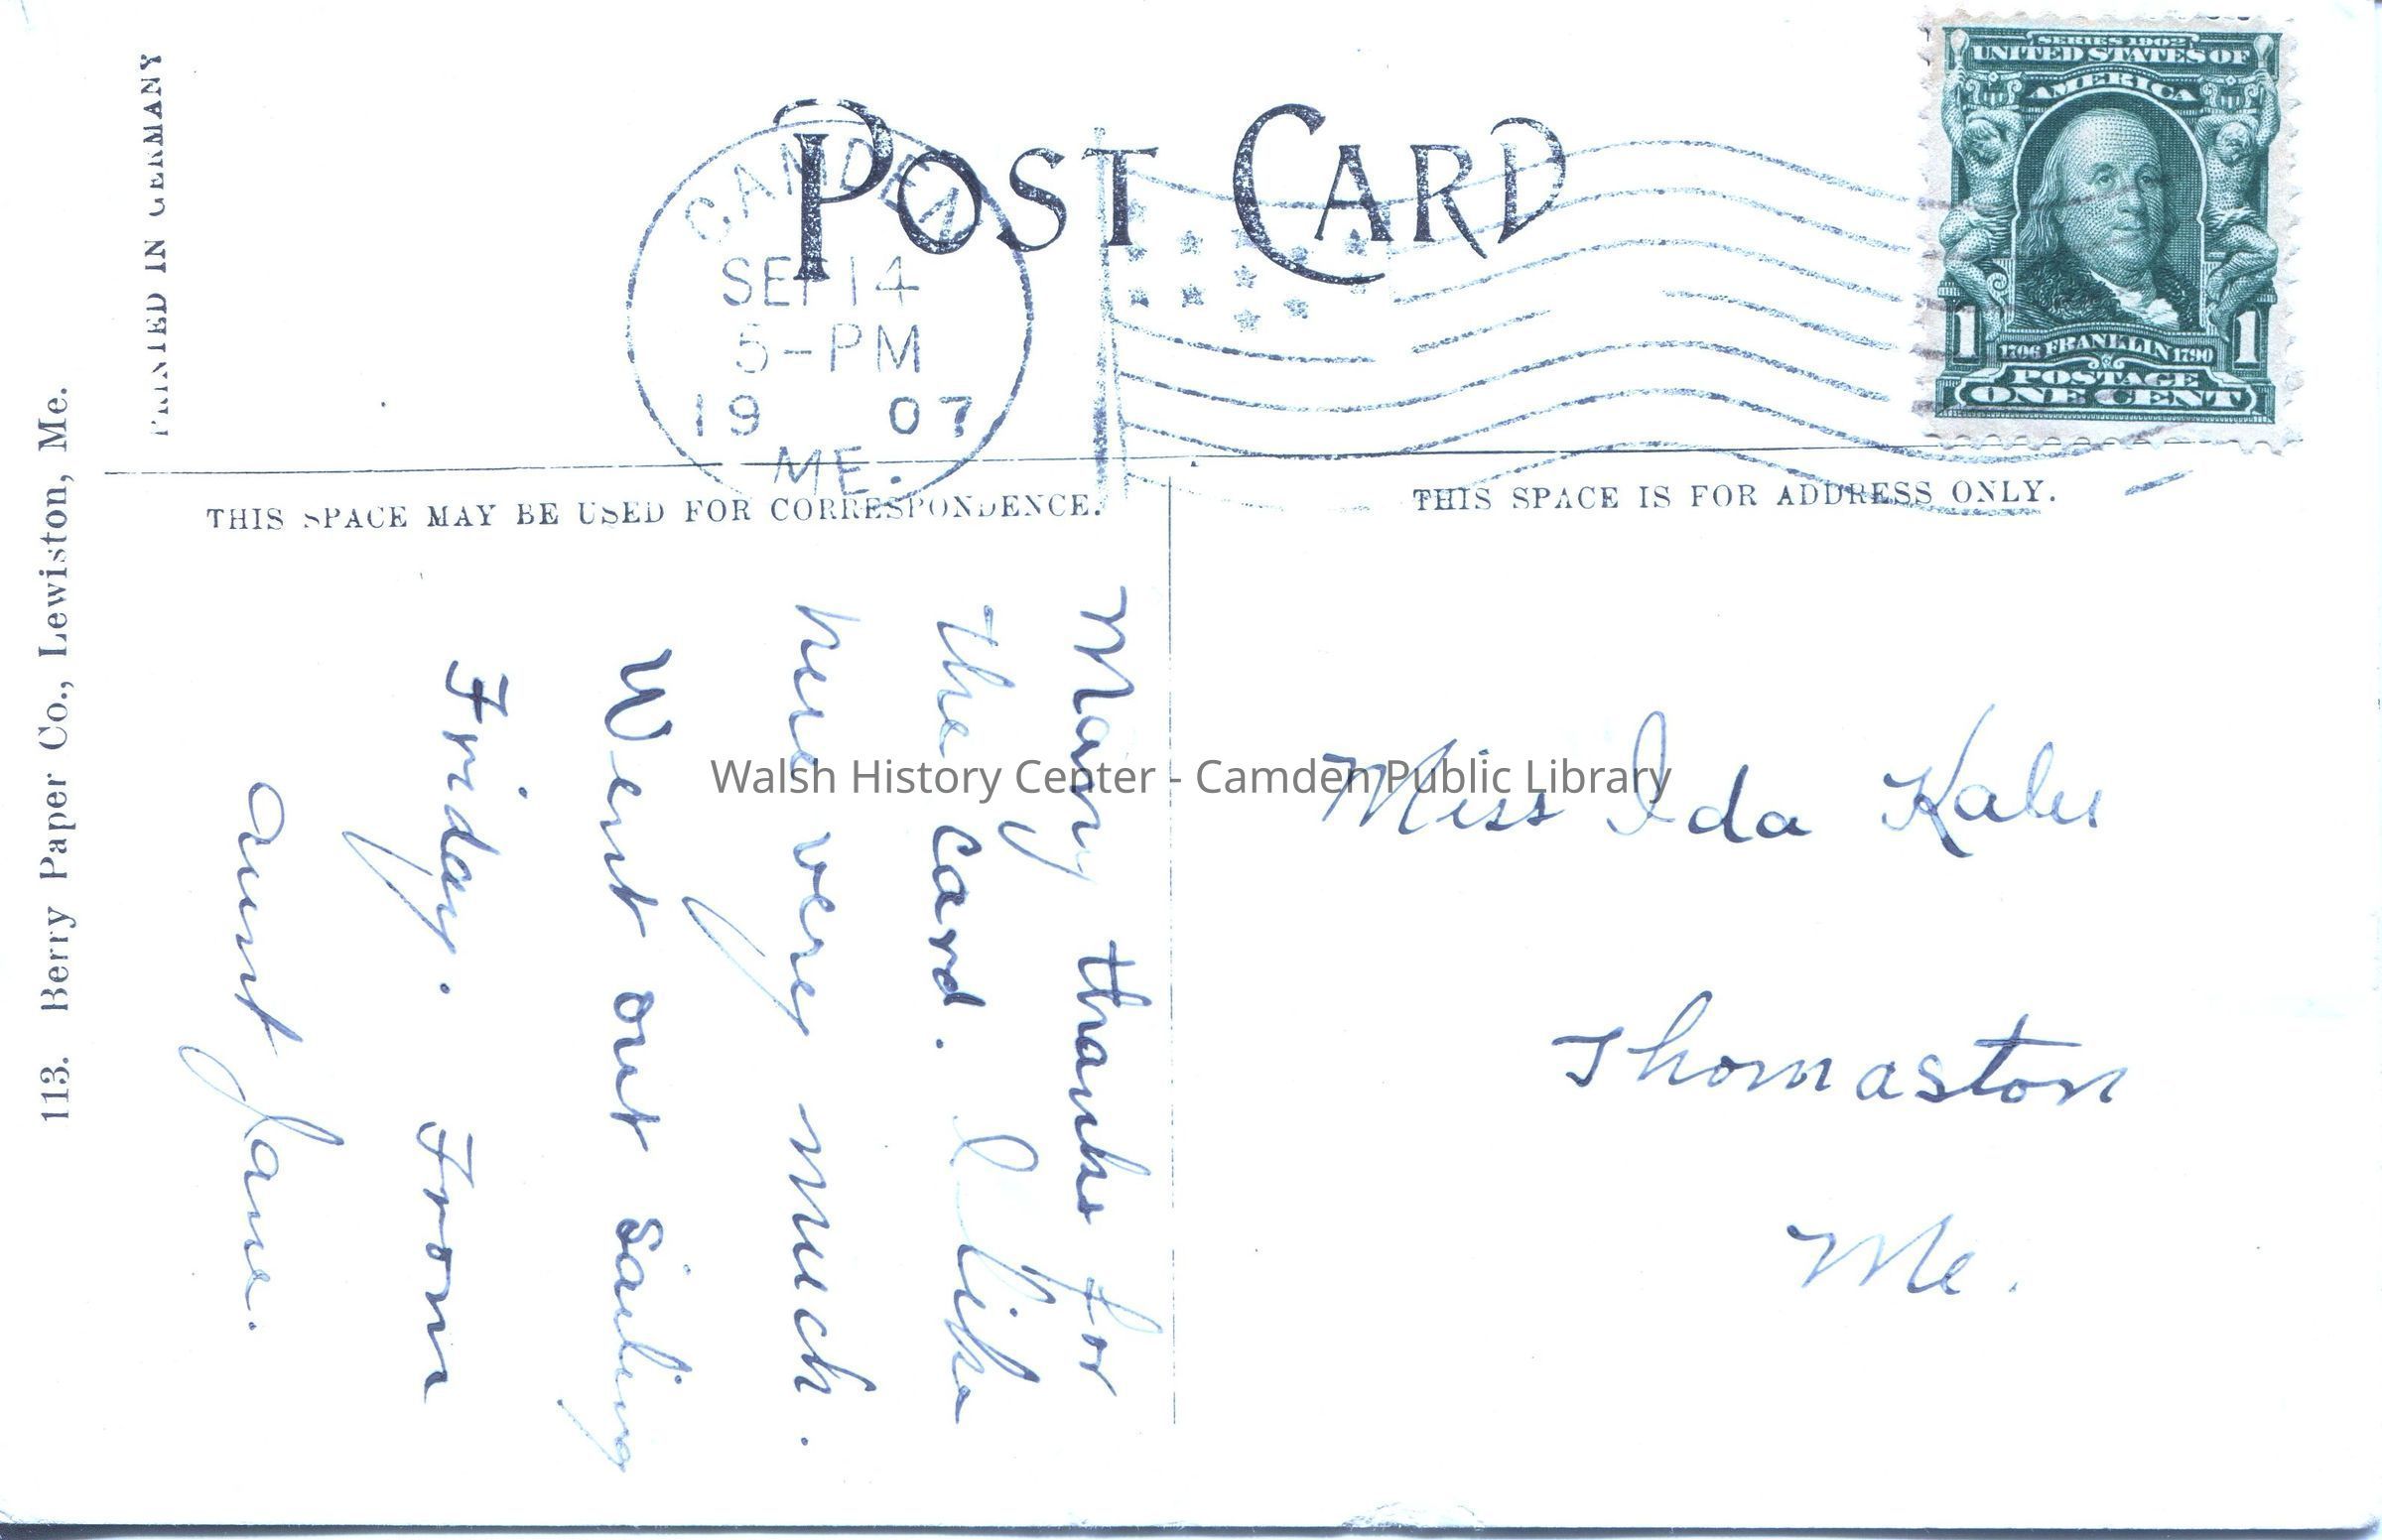 PRINTED IN GERMANY
113. Berry Paper Co., Lewiston, Me.
POST CARD
CAMDEN
SEP 14
5-PM
19 07
ME.
SERIES 1902
UNITED STATES OF
AMERICA
1 1706 FRANKLIN 1790 1
POSTAGE
ONE CENT
THIS SPACE MAY BE USED FOR CORRESPONDENCE.
THIS SPACE IS FOR ADDRESS ONLY.
Many thanks for
the card. I like
here very much.
Went out sailing
Friday. From
Aunt Jane.
Miss Ida
Thomaston
Me.
Walsh History Center - Camden Public Library